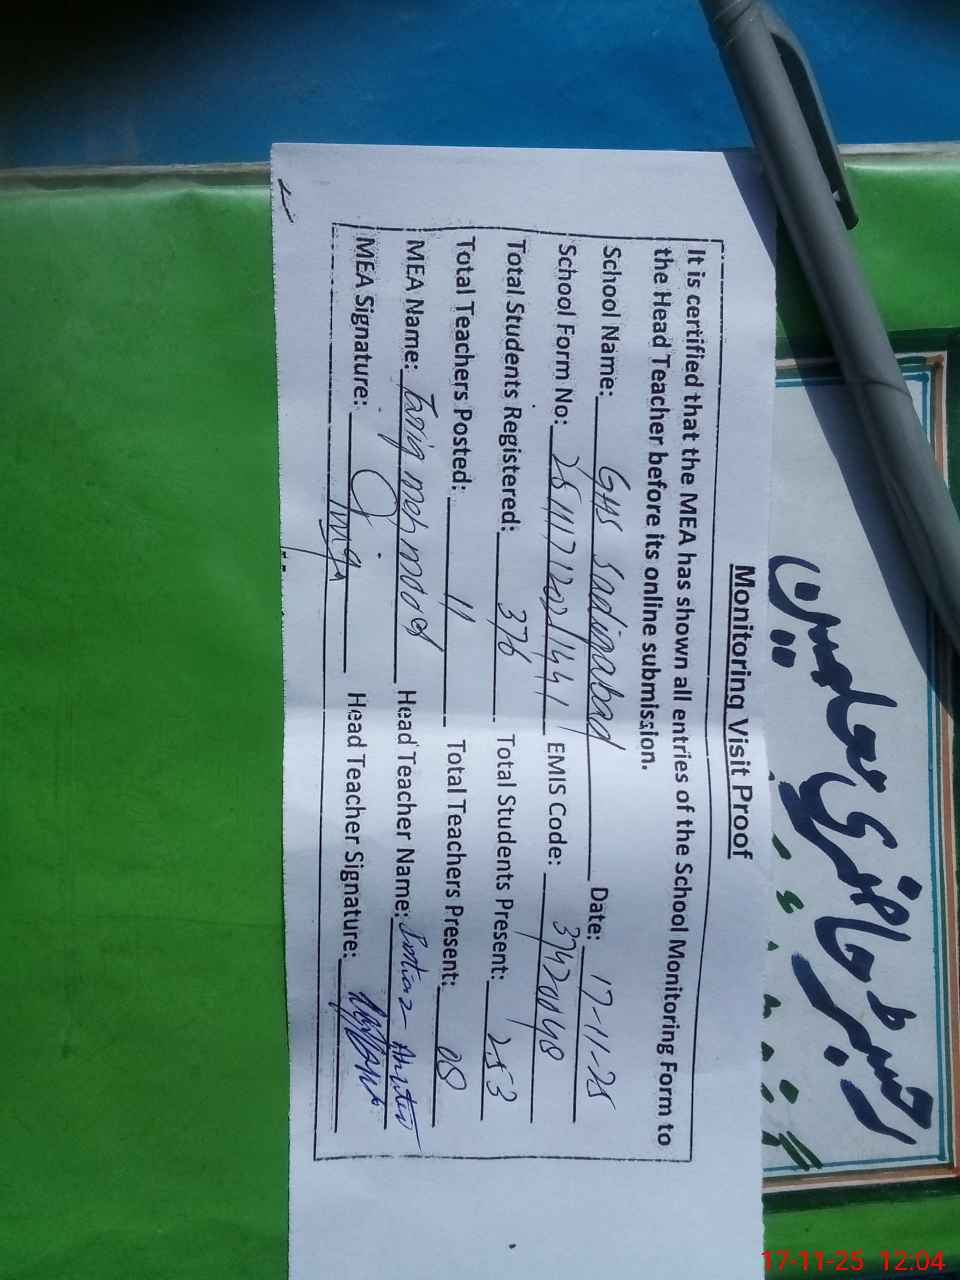 Monitoring Visit Proof
It is certified that the MEA has shown all entries of the School Monitoring Form to
the Head Teacher before its online submission.
School Name: GHS Sadiqabad Date: 17-11-25
School Form No: EMIS Code:
Total Students Registered: 376 Total Students Present: 253
Total Teachers Posted: 11 Total Teachers Present: 08
MEA Name: Tariq mehmood Head Teacher Name:
MEA Signature: Head Teacher Signature:
رجسٹر حاضری معلمین
17-11-25 12:04